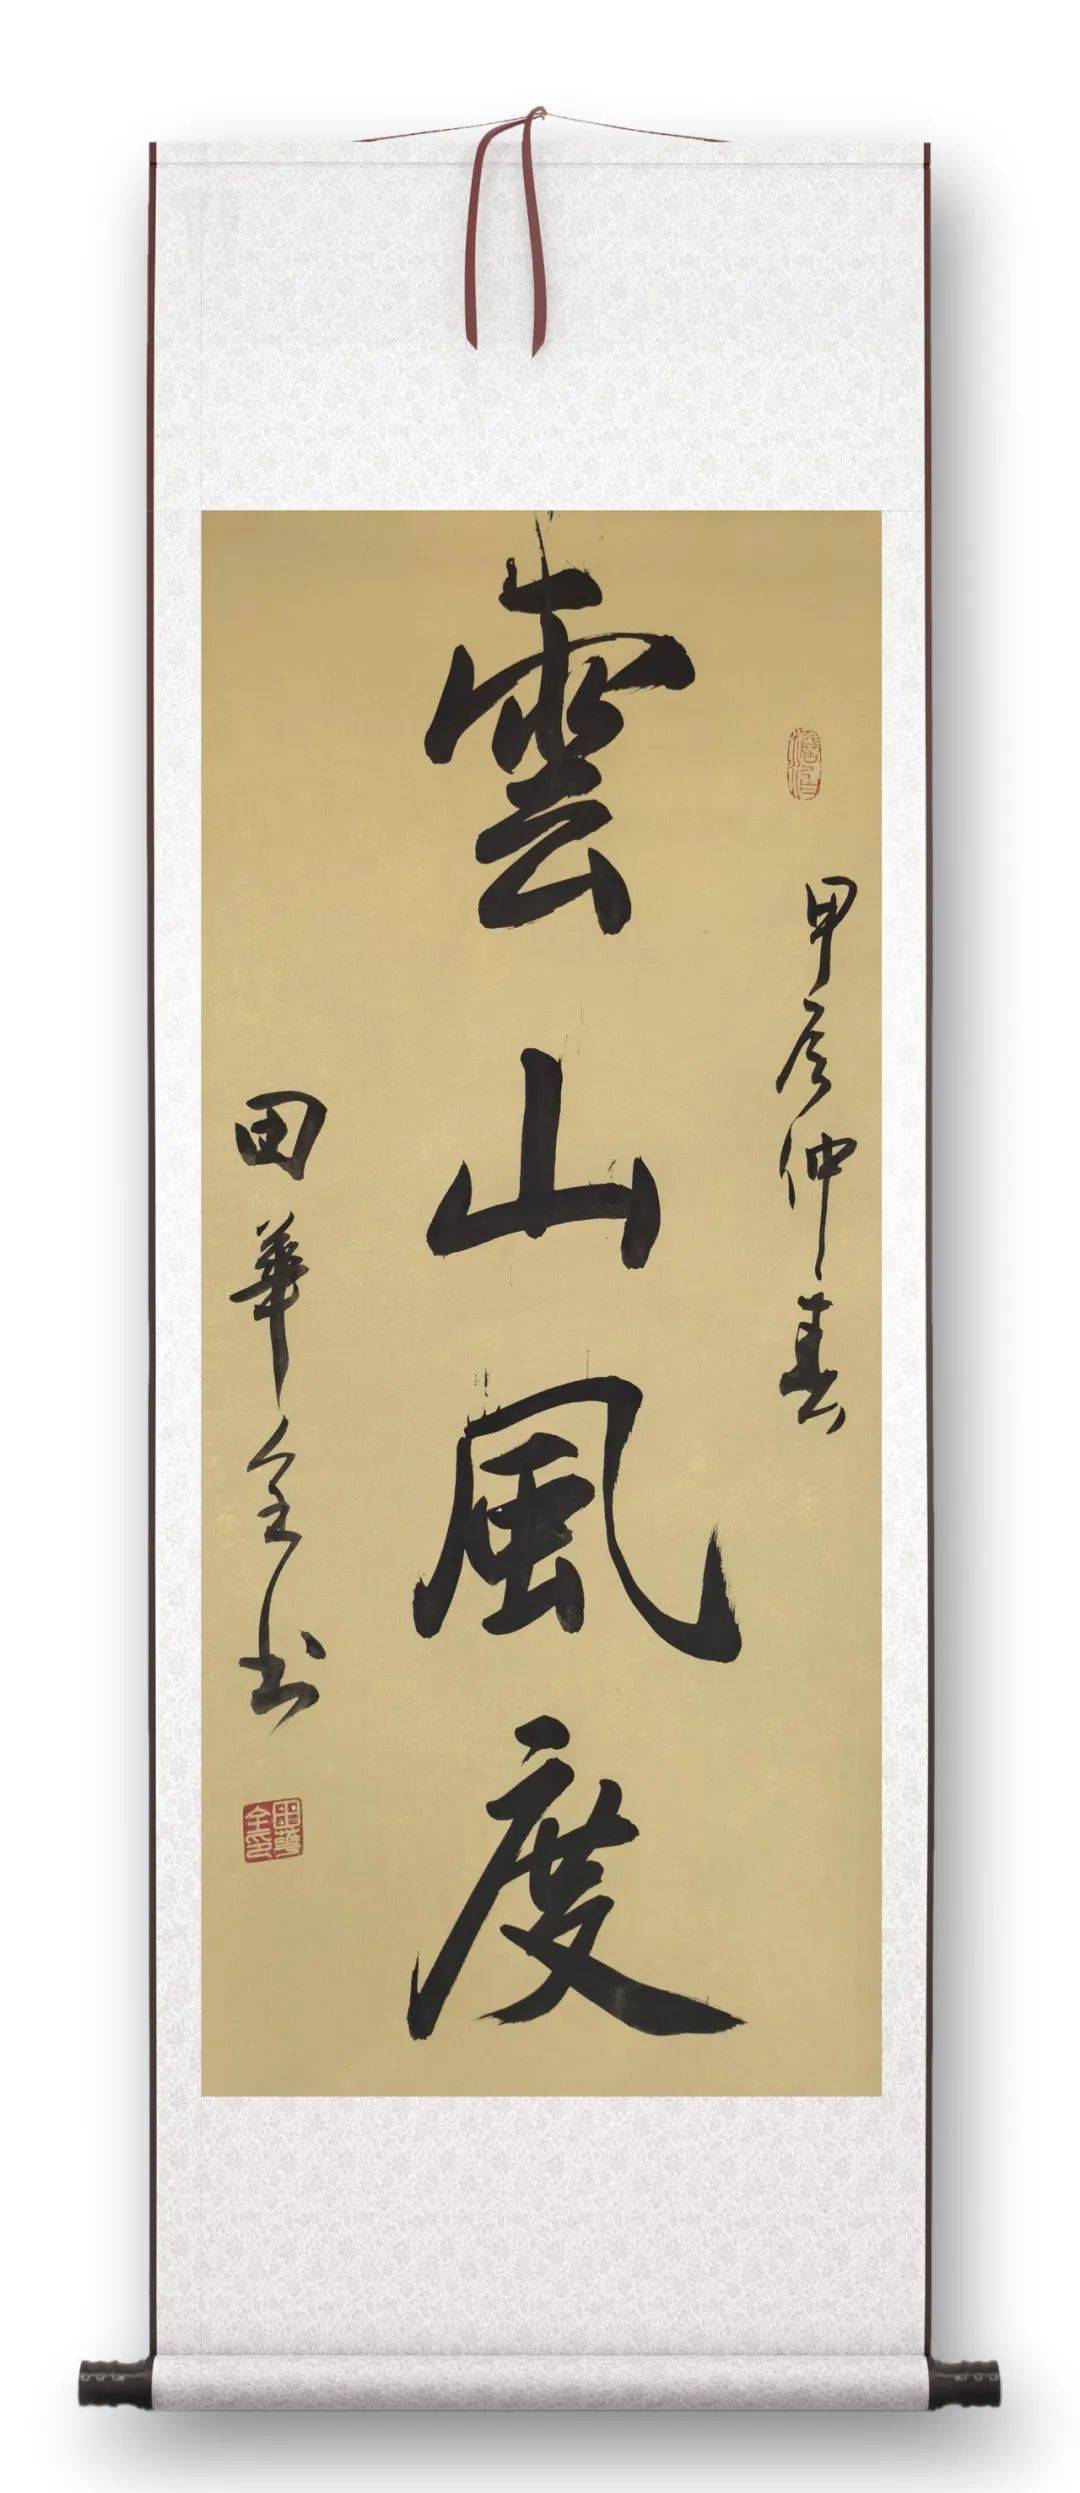 甲辰仲春
雲山風度
田華全书
田華全印